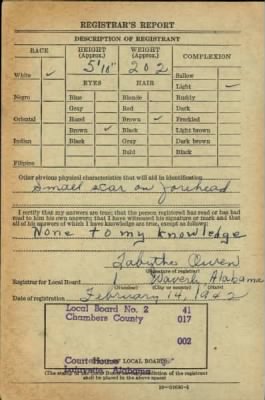 REGISTRAR'S REPORT
DESCRIPTION OF REGISTRANT
RACE HEIGHT (Approx.) WEIGHT (Approx.) COMPLEXION
5'10" 202 Sallow
White ✓ EYES HAIR Light ✓
Negro Blue Blonde Ruddy
Gray Red Dark
Oriental Hazel Brown ✓ Freckled
Brown ✓ Black Light brown
Indian Black Gray Dark brown
Bald Black
Filipino
Other obvious physical characteristics that will aid in identification
Small scar on forehead
I certify that my answers are true; that the person registered has read or has had
read to him his own answers; that I have witnessed his signature or mark and that
all of his answers of which I have knowledge are true, except as follows:
None to my knowledge
Tabitha Owen
(Signature of registrar)
Registrar for Local Board 1 Waverly Alabama
Date of registration February 14, 1942
Local Board No. 2 41
Chambers County 017
002
Court House LOCAL BOARD
Lafayette, Alabama
shall be placed in the above space)